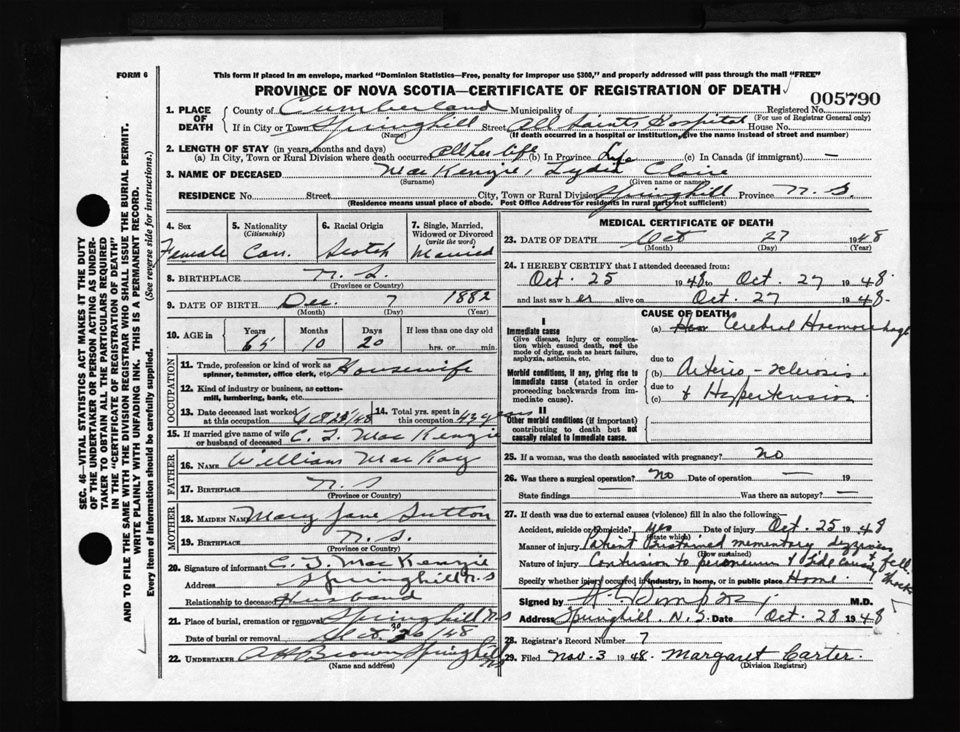 FORM 6
This form if placed in an envelope, marked "Dominion Statistics—Free, penalty for improper use $300," and properly addressed will pass through the mail "FREE"
PROVINCE OF NOVA SCOTIA—CERTIFICATE OF REGISTRATION OF DEATH
005790
1. PLACE OF DEATH
County of Cumberland Municipality of Registered No.
(For use of Registrar General only)
If in City or Town Springhill Street All Saints Hospital House No.
(Name) (If death occurred in a hospital or institution, give the name instead of street and number)
2. LENGTH OF STAY (in years, months and days)
(a) In City, Town or Rural Division where death occurred all her life (b) In Province Life (c) In Canada (if immigrant) —
3. NAME OF DECEASED MacKenzie, Lydia Claire
(Surname) (Given name or names)
RESIDENCE No. Street City, Town or Rural Division Springhill Province N.S.
(Residence means usual place of abode. Post Office Address for residents in rural parts not sufficient)
4. Sex
Female
5. Nationality
(Citizenship)
Can.
6. Racial Origin
Scotch
7. Single, Married, Widowed or Divorced
(write the word)
Married
8. BIRTHPLACE N.S.
(Province or Country)
9. DATE OF BIRTH Dec. 7 1882
(Month) (Day) (Year)
10. AGE in Years Months Days If less than one day old
65 10 20 hrs. or min.
OCCUPATION
11. Trade, profession or kind of work as spinner, teamster, office clerk, etc. Housewife
12. Kind of industry or business, as cotton-mill, lumbering, bank, etc.
13. Date deceased last worked at this occupation Oct 25/48
14. Total yrs. spent in this occupation 43 years
15. If married give name of wife or husband of deceased C. J. MacKenzie
FATHER
16. NAME William MacKay
17. BIRTHPLACE N.S
(Province or Country)
MOTHER
18. MAIDEN NAME Mary Jane Sutton
19. BIRTHPLACE N.S.
(Province or Country)
20. Signature of informant C. J. MacKenzie
Address Springhill N.S
Relationship to deceased Husband
21. Place of burial, cremation or removal Springhill N.S
Date of burial or removal Oct. 30/48
22. UNDERTAKER A H Brown Springhill NS
(Name and address)
MEDICAL CERTIFICATE OF DEATH
23. DATE OF DEATH Oct 27 1948
(Month) (Day) (Year)
24. I HEREBY CERTIFY that I attended deceased from:
Oct. 25 1948 to Oct. 27 1948.
and last saw her alive on Oct. 27 1948.
CAUSE OF DEATH
I
Immediate cause
Give disease, injury or complication which caused death, not the mode of dying, such as heart failure, asphyxia, asthenia, etc.
(a) Cerebral Haemorrhage
due to
Morbid conditions, if any, giving rise to immediate cause (stated in order proceeding backwards from immediate cause).
(b) Arterio-sclerosis.
due to
(c) & Hypertension
II
Other morbid conditions (if important) contributing to death but not causally related to immediate cause.
25. If a woman, was the death associated with pregnancy? no
26. Was there a surgical operation? no Date of operation — 19
State findings — Was there an autopsy? —
27. If death was due to external causes (violence) fill in also the following:—
Accident, suicide or homicide? yes Date of injury Oct. 25 1948
(State which)
Manner of injury Patient sustained momentary dizziness & fell.
(How sustained)
Nature of injury Contusion to & side causing shock
Specify whether injury occurred in industry, in home, or in public place Home.
Signed by M.D.
Address Springhill, N.S. Date Oct. 28 1948
28. Registrar's Record Number 7
29. Filed Nov. 3 1948. Margaret Carter.
(Division Registrar)
SEC. 46—VITAL STATISTICS ACT MAKES IT THE DUTY
OF THE UNDERTAKER OR PERSON ACTING AS UNDER-
TAKER TO OBTAIN ALL THE PARTICULARS REQUIRED
IN THE "CERTIFICATE OF REGISTRATION OF DEATH"
AND TO FILE THE SAME WITH THE DIVISION REGISTRAR WHO SHALL ISSUE THE BURIAL PERMIT.
WRITE PLAINLY WITH UNFADING INK. THIS IS A PERMANENT RECORD.
Every item of information should be carefully supplied. (See reverse side for instructions.)